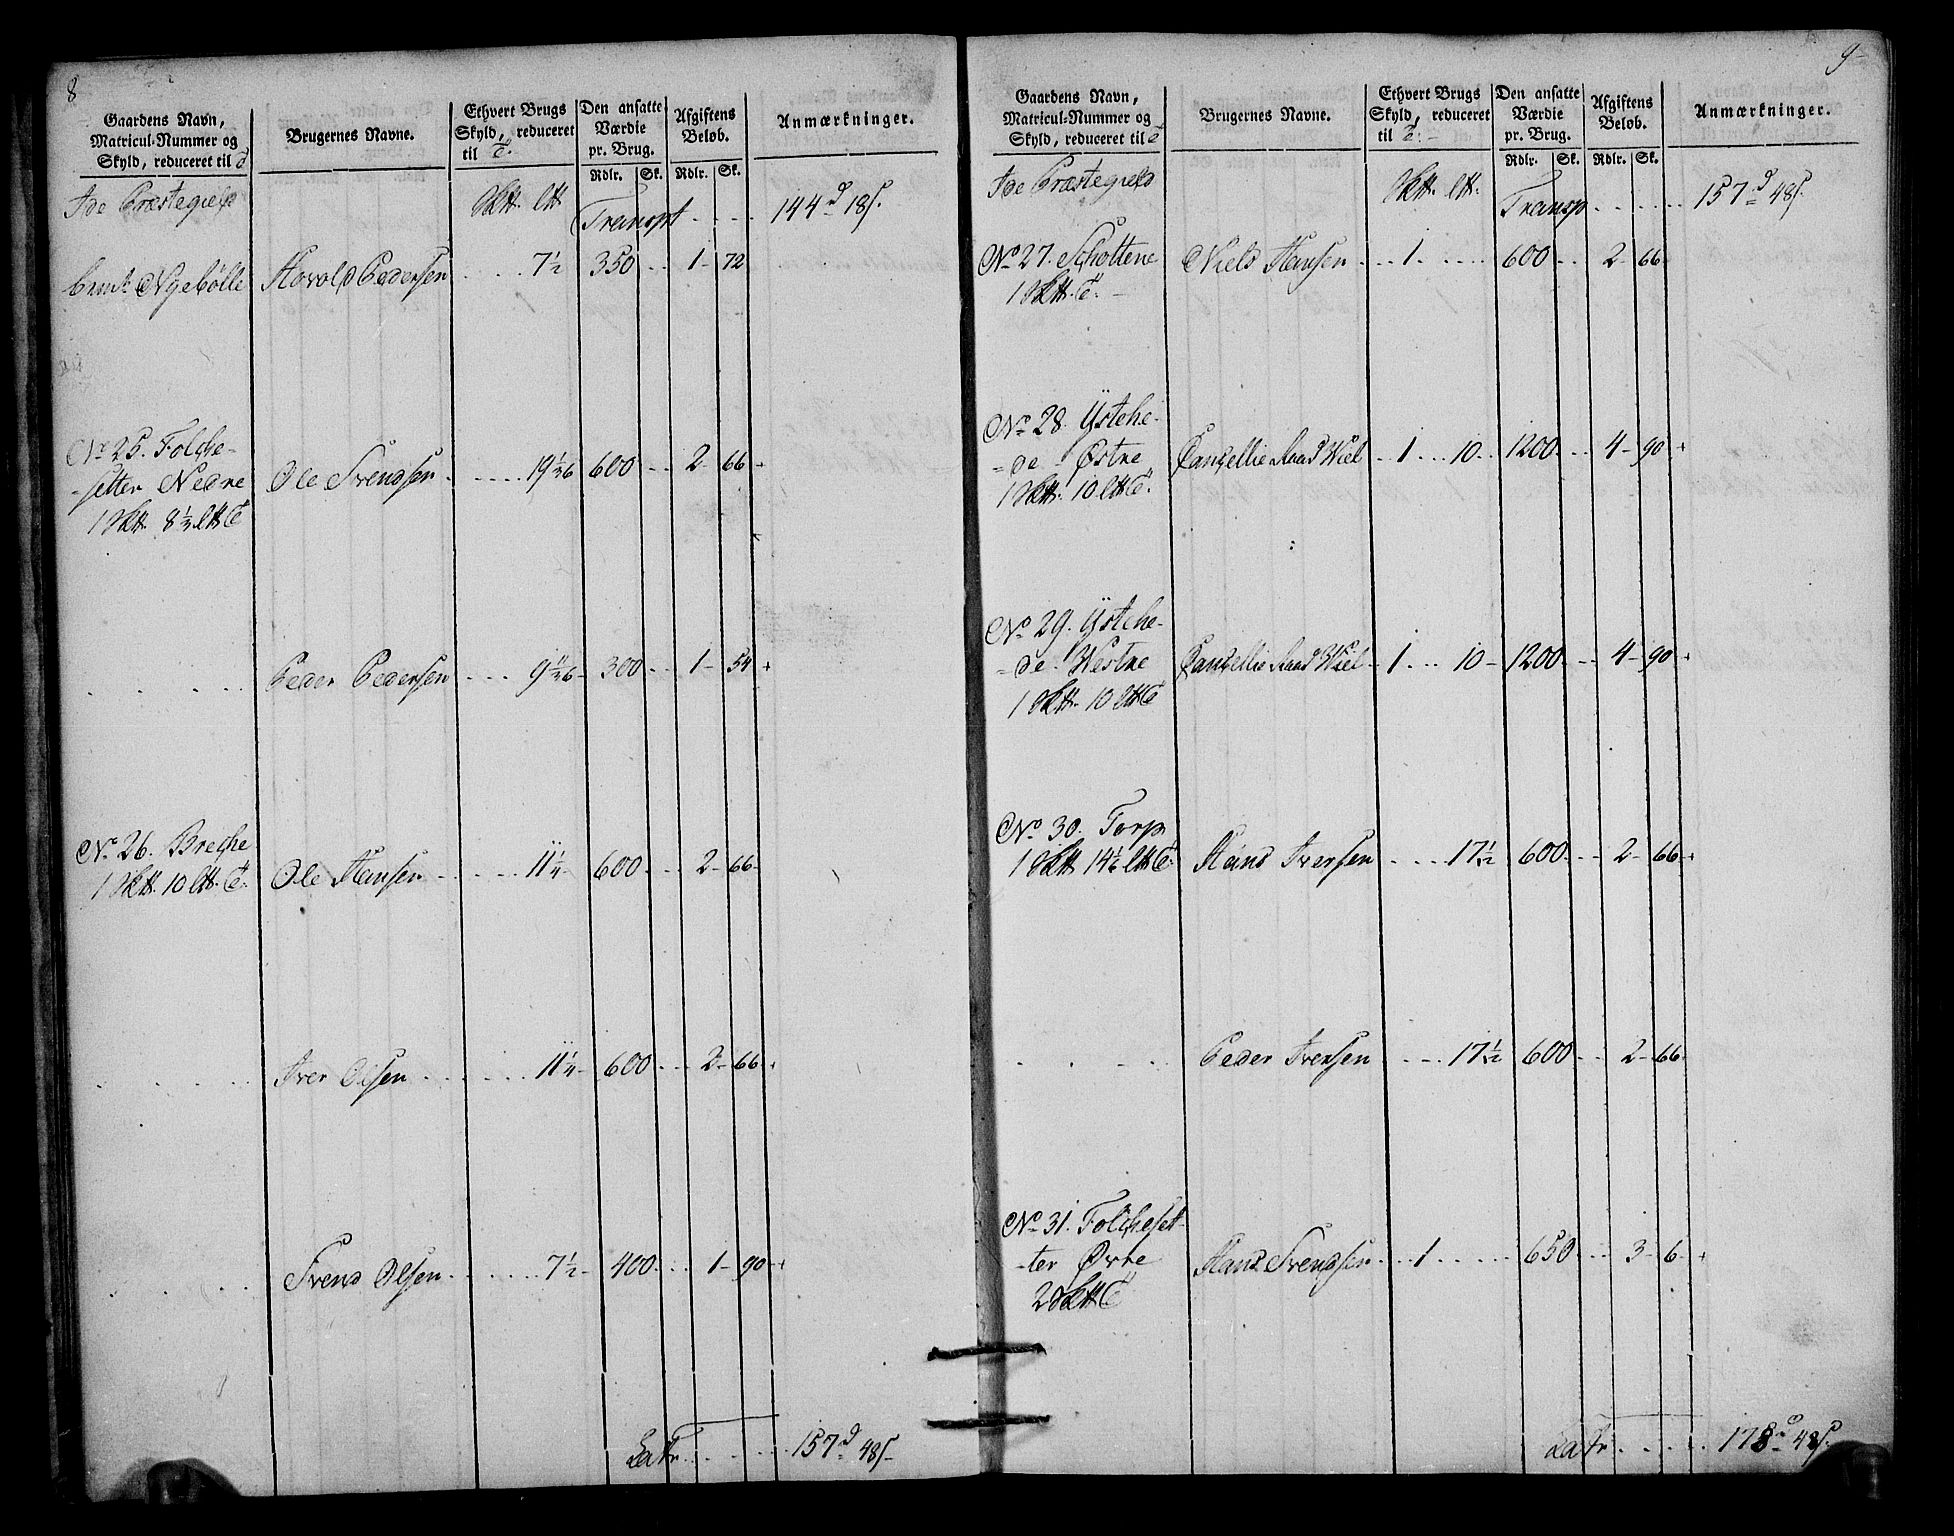 8
Gaardens Navn,
Matricul-Nummer og
Skyld, reduceret til
Brugernes Navne.
Ethvert Brugs
Skyld, reduceret
til
Den ansatte
Værdie
pr. Brug.
Afgiftens
Beløb.
Anmærkninger.
Rdlr. Sk. Rdlr. Sk.
Ide Præstegield
Transpt . . . . 144 18 s.
Nyebølle Havold Pedersen . . . . 7½ 350 . . 1 - 72
No 25. Folche-
-setter Nedre Ole Svendsen . . . . . 600 . . 2 - 66
Peder Pedersen . . . 300 . . 1 - 54
No 26. Breche
Ole Hansen . . . . . 11¼ 600 . . 2 - 66
Iver Olsen . . . . . 11¼ 600 . . 2 - 66
Svend Olsen . . . . . 7½ 400 . . 1 - 90
Latr. . . . . 157 48 s
9
Gaardens Navn,
Matricul-Nummer og
Skyld, reduceret til
Brugernes Navne.
Ethvert Brugs
Skyld, reduceret
til
Den ansatte
Værdie
pr. Brug.
Afgiftens
Beløb.
Anmærkninger.
Rdlr. Sk. Rdlr. Sk.
Ide Præstegield
Transp . . . . . 157 48 s.
No 27. Schottene Niels Hansen . . . 1 . . . . . 600 . . 2 - 66
No 28. Ystehe-
-de Østre Cancellie Raad Wiel . . 1 . . . 10 . . 1200 . . 4 - 90
No 29. Ystehe-
-de Westre Cancellie Raad Wiel . 1 . . . 10 - 1200 . . 4 - 90
No 30. Torp
Hans Iversen . . . . 17½ 600 . . 2 - 66
Peder Iversen . . . . 17½ 600 . . 2 - 66
No 31. Folcheset-
-ter Øvre Hans Svendsen . . . 1 . . . . . 650 . . 3 - 6
Latr . . . . . 178 48 s.